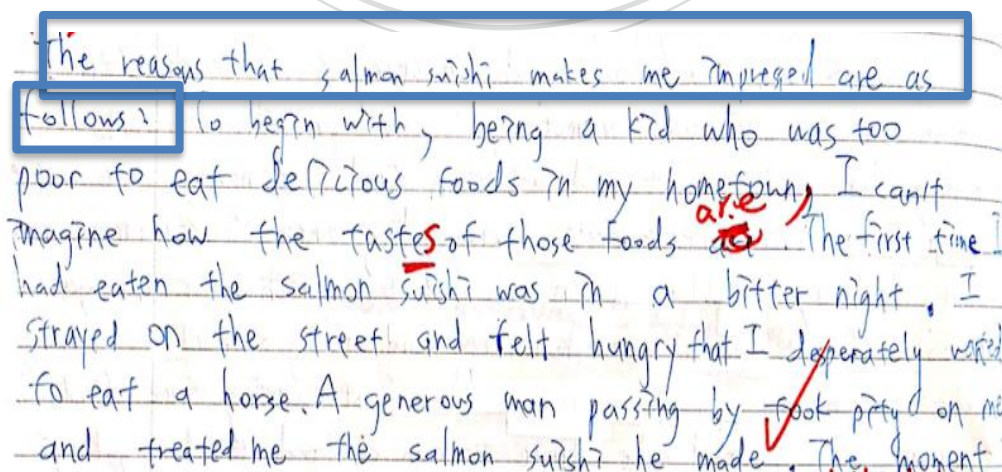 The reasons that salmon suishi makes me impresed are as
follows: To begin with, being a kid who was too
poor to eat delicious foods in my hometown, I can't
imagine how the tastes of those foods are. The first time I
had eaten the salmon suishi was in a bitter night. I
strayed on the street and felt hungry that I desperately wanted
to eat a horse. A generous man passing by took pity on me
and treated me the salmon suishi he made. The moment